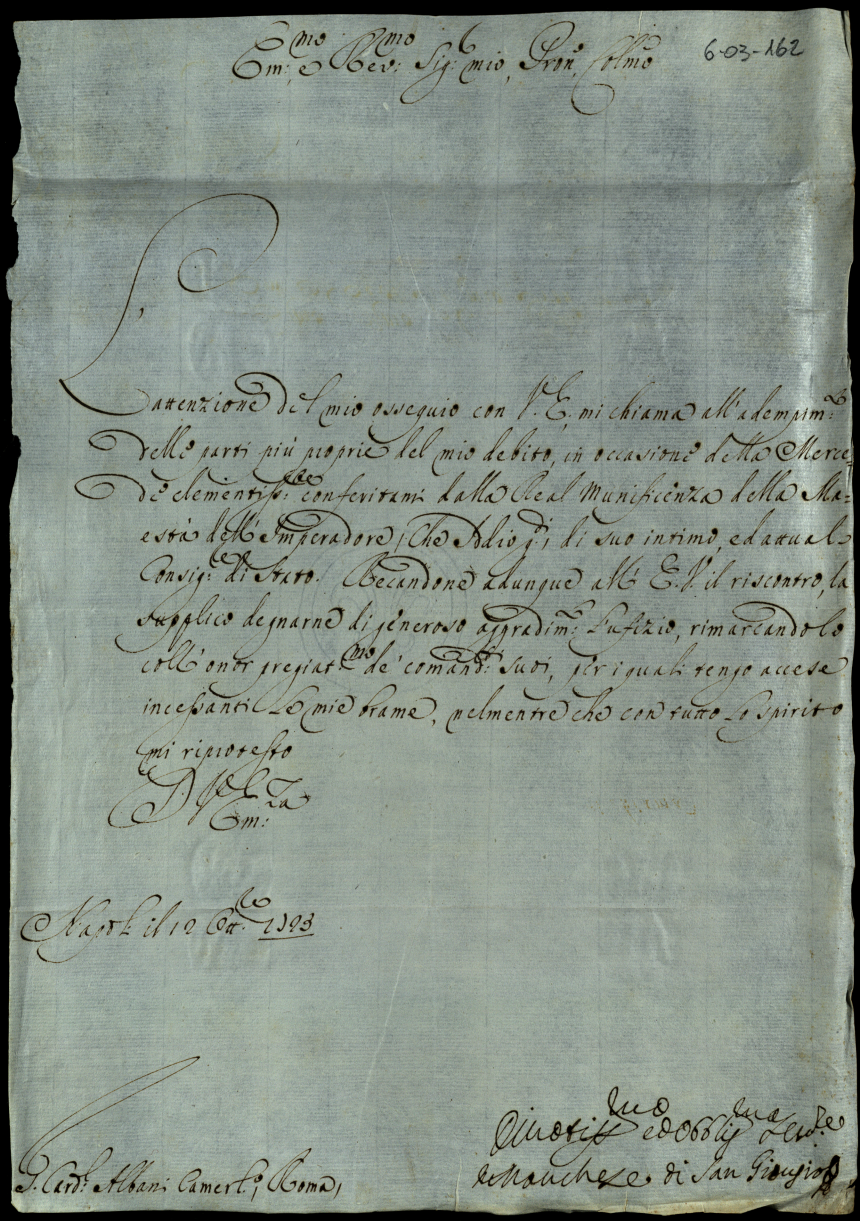 6-03-162
Em:mo e Rev:mo Sig:r mio, Pron, Colmo
L'attenzione del mio osseguio con V. E. mi chiama all'adempim:to
delle parti più proprie del mio debito, in occasione della Merce=
de clementiss:te conferitami dalla Real Munificenza della Ma=
està dell'Imperadore, che Adio g:di, di suo intimo, ed attual
Consig:re di Stato. Recandone adunque all'E. V. il riscontro, la
supplico degnarne di generoso aggradim:to l'ufizio, rimarcandolo
coll'onor pregiat:mo de' comand:ti suoi, per i quali tengo accese
incessanti le mie brame, nelmentre che con tutto lo spirito
mi riprotesto
D. V. Em:za
Napoli il 12 Ott:re 1723
Divotiss:mo ed Obblig:mo Ser:re
Marchese di San Giorgio
S. Card:l Albani Camerl:o, Roma,